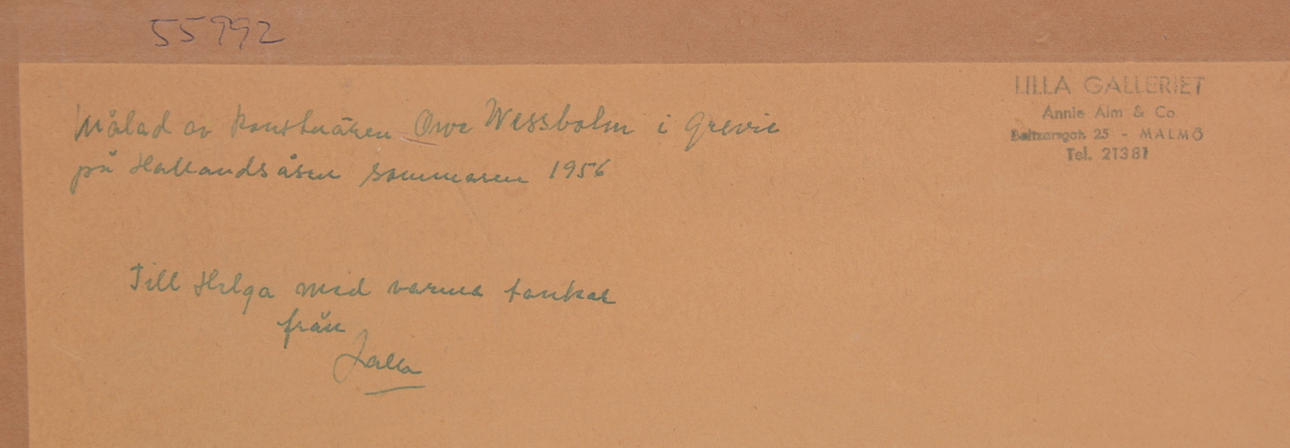 55992
Målad av konstnären Owe Wessbolm i Grevie
på Hallandsåsen sommaren 1956
Till Helga med varma tankar
från
LILLA GALLERIET
Annie Alm & Co
Baltzarsgat. 25 - MALMÖ
Tel. 21381